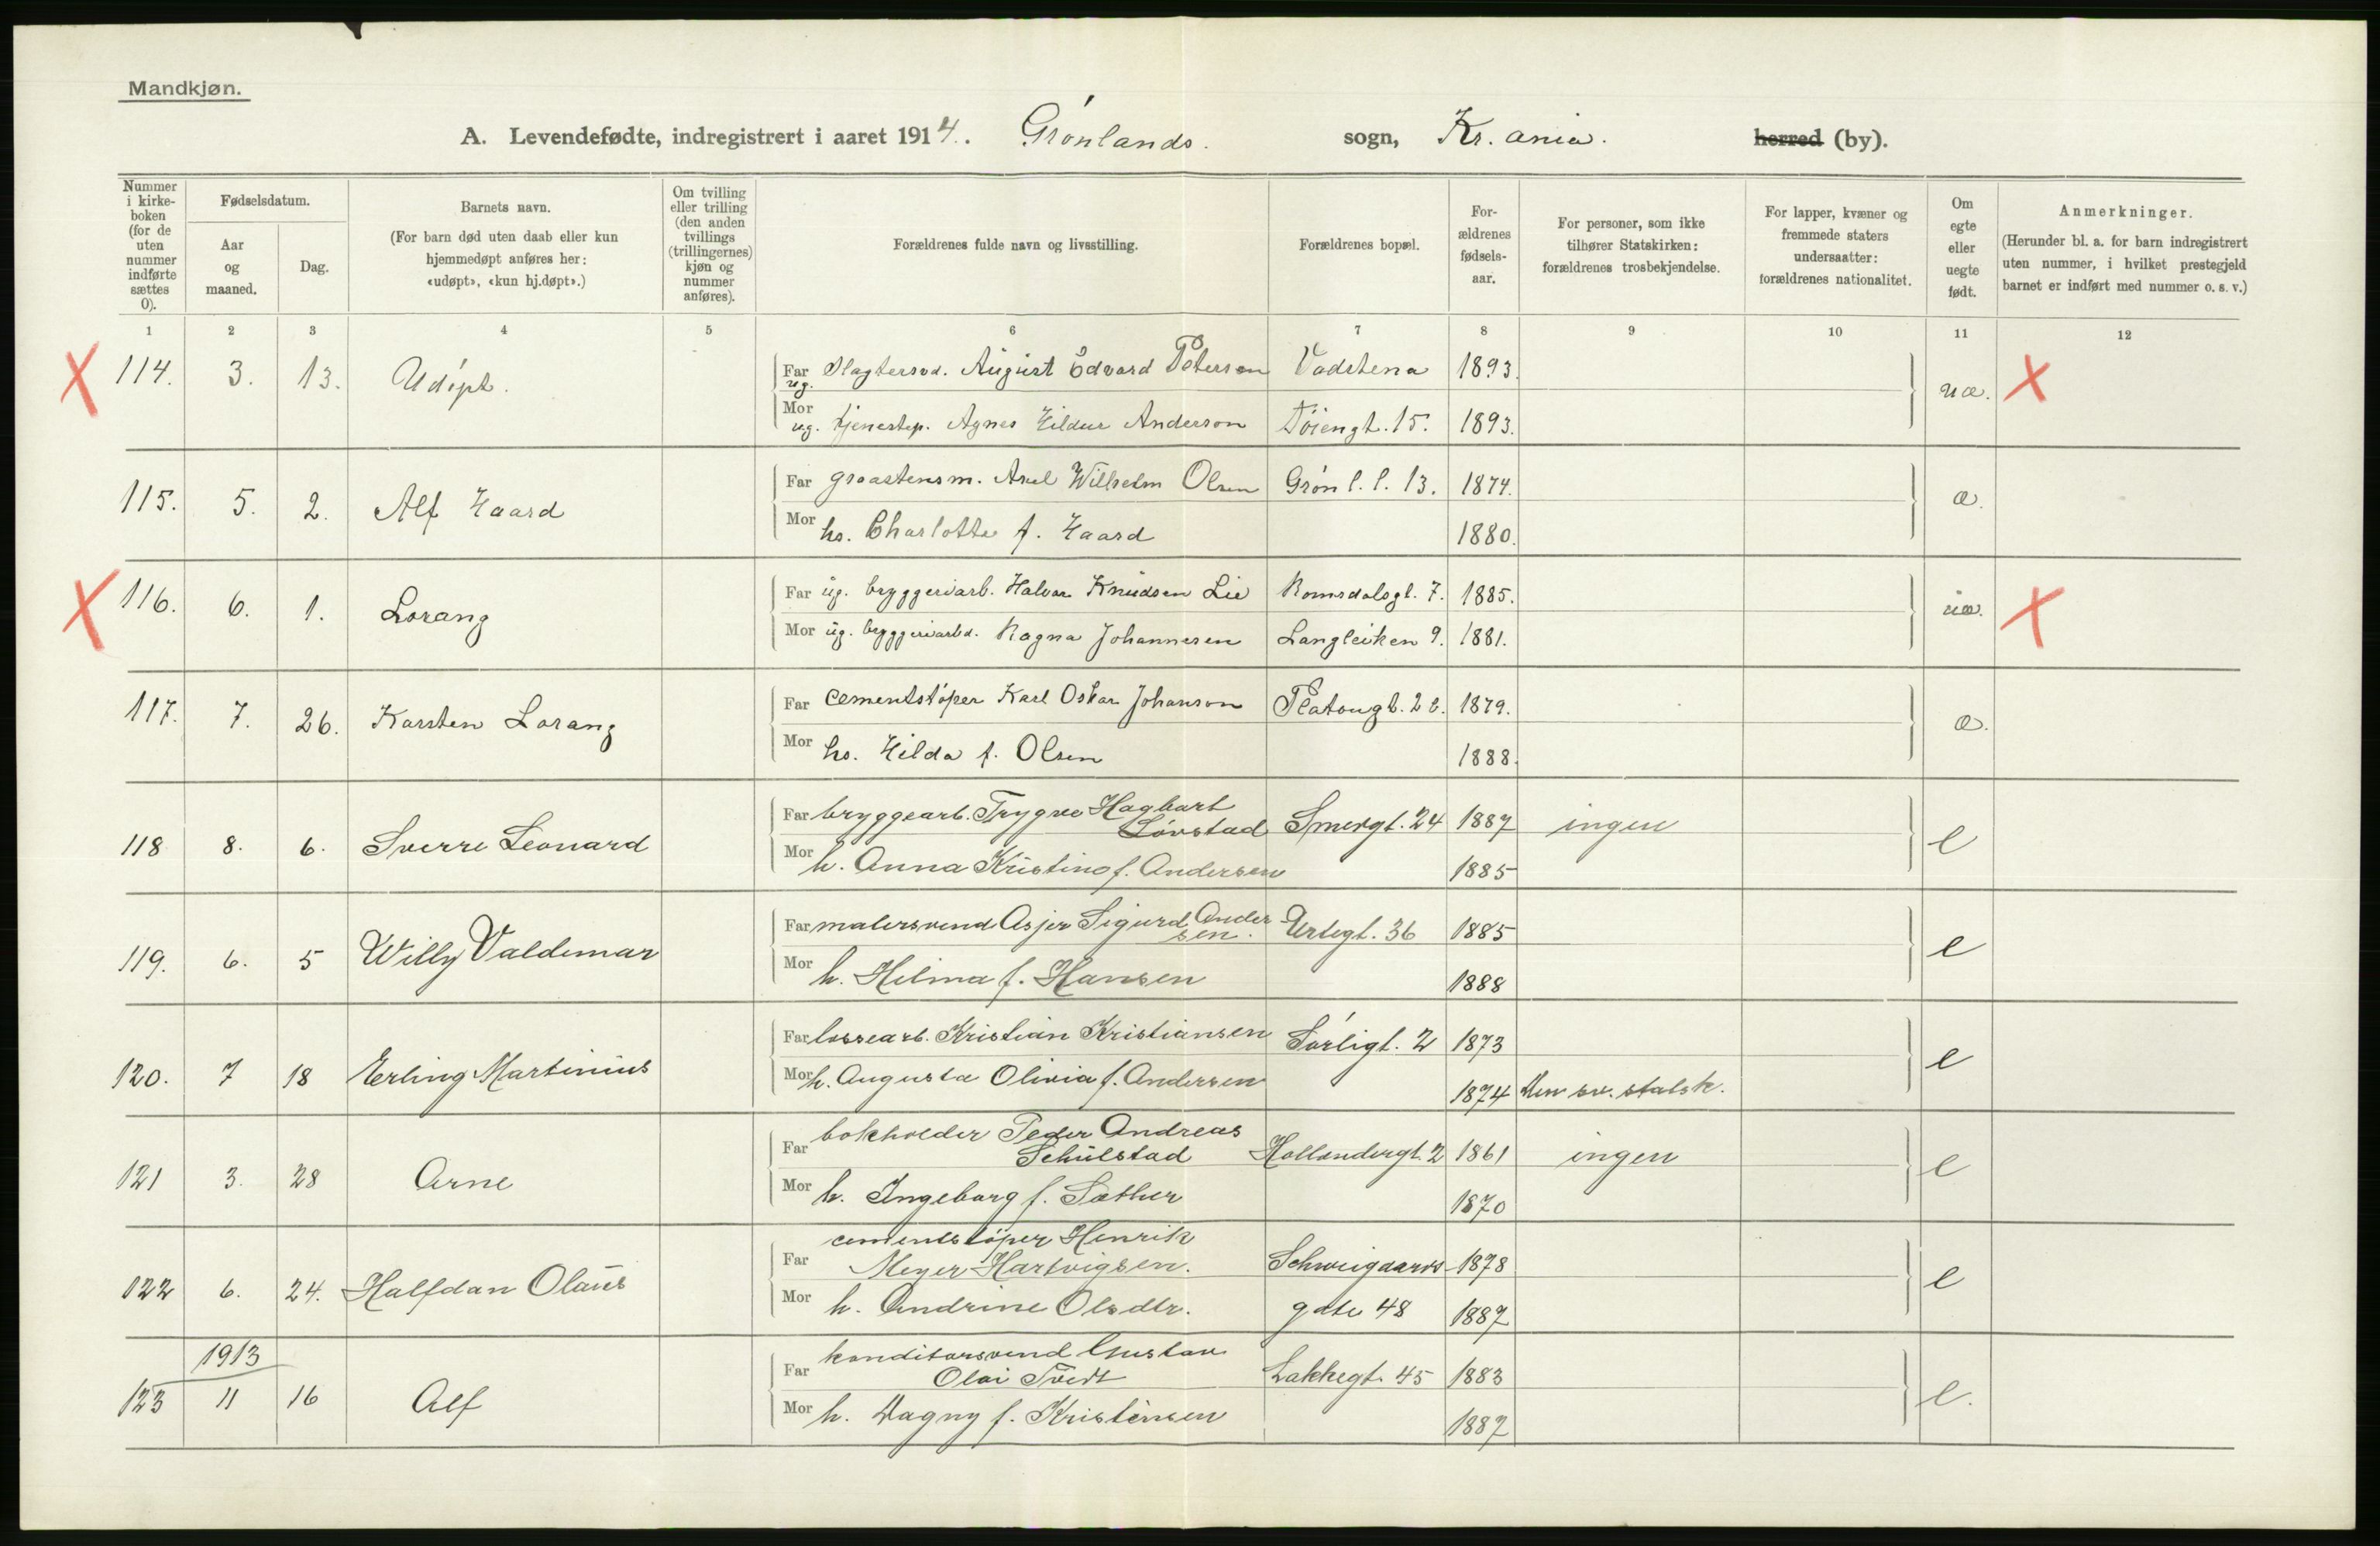 Mandkjøn.
A. Levendefødte, indregistrert i aaret 1914. Grønlands. sogn, Kr.ania. herred (by).
Nummer i kirke-boken (for de uten nummer indførte sættes 0).
Fødselsdatum.
Aar og maaned.
Dag.
Barnets navn.
(For barn død uten daab eller kun hjemmedøpt anføres her: «udøpt», «kun hj.døpt».)
Om tvilling eller trilling (den anden tvillings (trillingernes) kjøn og nummer anføres).
Forældrenes fulde navn og livsstilling.
Forældrenes bopæl.
For-ældrenes fødsels-aar.
For personer, som ikke tilhører Statskirken: forældrenes trosbekjendelse.
For lapper, kvæner og fremmede staters undersaatter: forældrenes nationalitet.
Om egte eller uegte født.
Anmerkninger.
(Herunder bl. a. for barn indregistrert uten nummer, i hvilket prestegjeld barnet er indført med nummer o. s. v.)
1 2 3 4 5 6 7 8 9 10 11 12
X 114. 3. 13. Udøpt. Far ug. Slagtersvd. August Edvard Peterson Vadstena 1893. uæ. X
Mor ug. tjenestep. Agnes Hildur Anderson Tøiengt. 15. 1893.
115. 5. 2. Alf Haard Far graastensm. Axel Wilhelm Olsen Grønl. l. 13. 1874. æ.
Mor hs. Charlotte f. Haard 1880.
X 116. 6. 1. Lorang Far ug. bryggeriarb. Halvor Knudsen Lie Romsdalsgt. 7. 1885. uæ. X
Mor ug. bryggeriarbd. Ragna Johannesen Langleiken 9. 1881.
117. 7. 26. Karsten Lorang Far cementstøper Karl Oskar Johanson Platougt. 2 b. 1879. æ.
Mor hs. Hilda f. Olsen 1888.
118 8. 6. Sverre Leonard Far bryggearb. Trygve Hagbart Løvstad Smedgt. 24 1887 ingen e
Mor h. Anna Kristine f. Andersen 1885
119. 6. 5 Willy Valdemar Far malersvend Asjer Sigurd Andersen. Urtegt. 36 1885 e
Mor h. Hilma f. Hansen 1888
120. 7 18 Erling Martinius Far lossearb. Kristian Kristiansen Sørligt. 2 1873 e
Mor h. Augusta Olivia f. Andersen 1874 Den sv. statsk.
121 3. 28 Arne Far bokholder Peder Andreas Schulstad Hollendergt. 2 1861 ingen e
Mor h. Ingeborg f. Sæther 1870
122 6. 24. Halfdan Olaus Far cementstøper Henrik Meyer Hartvigsen. Schweigaards- 1878 e
Mor h. Andrine Olsdtr. gate 48 1887
1913
123 11 16 Alf Far konditorsvend Gustav Olai Tvedt Lakkegt. 45 1883 e.
Mor h. Dagny f. Kristensen 1887